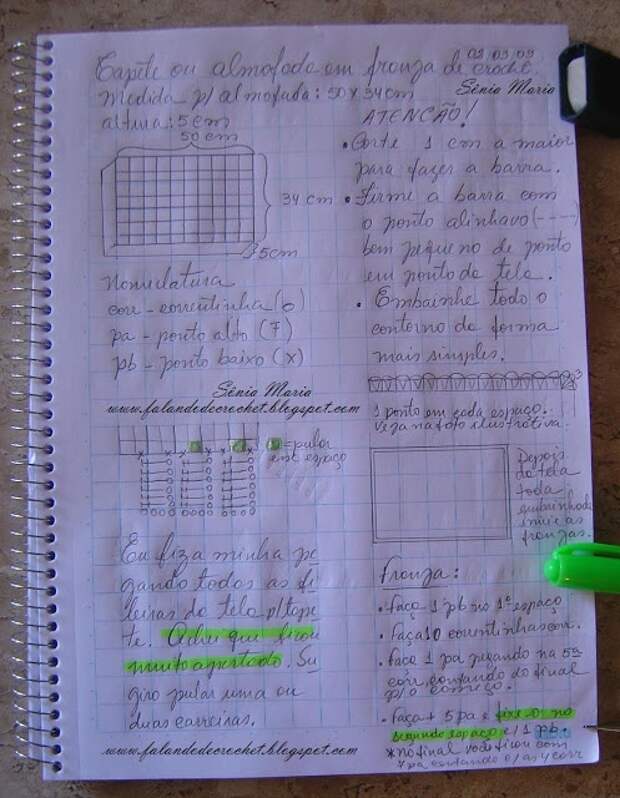 02/03/09
Tapete ou almofada em fronza de crochê.
Medida p/ almofada: 50 x 34 cm
Sônia Maria
altura: 5 cm
50 cm
34 cm
5cm
Nomeclatura
corr - correntinha (o)
pa - ponto alto (T)
pb - ponto baixo (x)
Sônia Maria
www.falandodecrochet.blogspot.com
= pular
est espaço
Eu fiz a minha pe
gando todos as fi
leiras da tela p/ tape
te. Achei que ficou
muito apertado. Su
giro pular uma ou
duas carreiras.
www.falandodecrochet.blogspot.com
ATENCÃO!
• Corte 1 cm a maior
para fazer a barra.
• Firme a barra com
o ponto alinhavo (----)
bem pequeno de ponto
em ponto da tela.
• Embainhe todo o
contorno da forma
mais simples.
1 ponto em cada espaço.
Veja na foto ilustrativa.
Depois
da tela
toda
embainhada
inicie as
fronzas.
Fronza:
• faça 1 pb no 1º espaço
• Faça 10 correntinhas corr.
• faça 1 pa pegando na 5ª
corr, contando do final
p/ o começo.
• faça + 5 pa e fixe-o no
segundo espaço c/ 1 pb.
* no final você ficou com
7 pa contando c/ as 4 corr